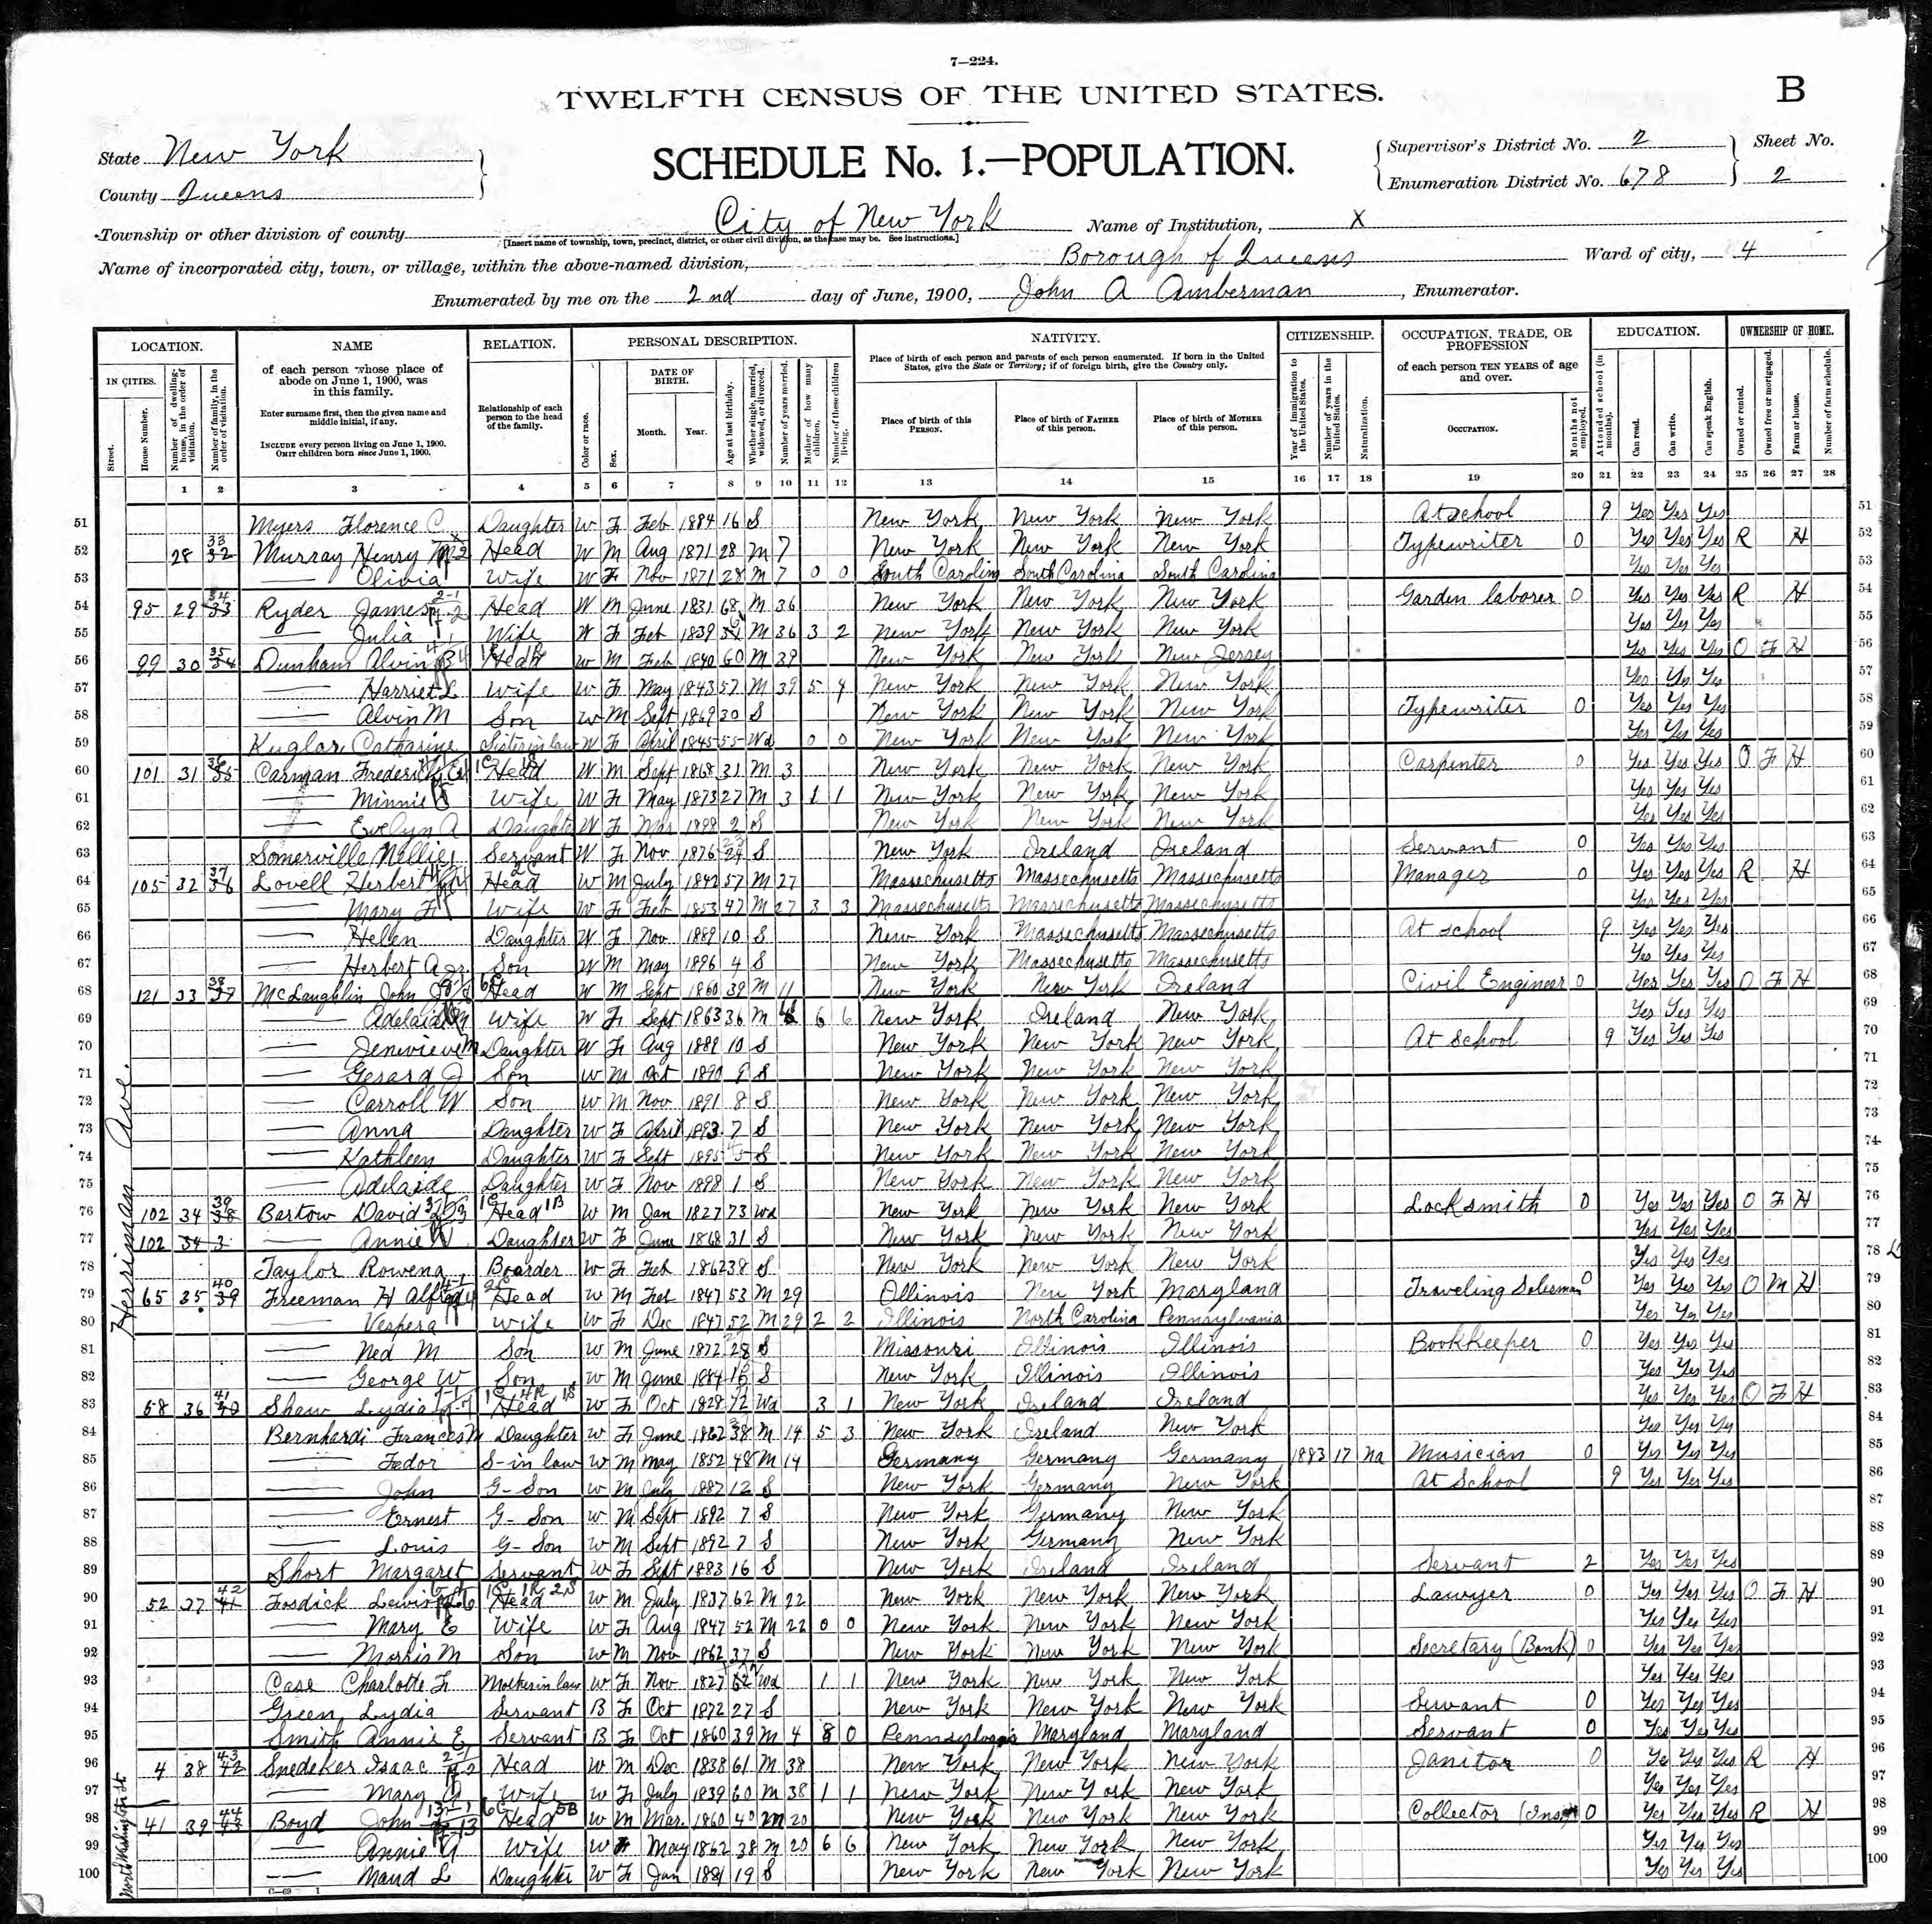 7—224.
TWELFTH CENSUS OF THE UNITED STATES.
B
State New York
County Queens
SCHEDULE No. 1.—POPULATION.
Supervisor's District No. 2
Enumeration District No. 678
Sheet No.
2
Township or other division of county City of New York Name of Institution, X
[Insert name of township, town, precinct, district, or other civil division, as the case may be. See instructions.]
Name of incorporated city, town, or village, within the above-named division, Borough of Queens Ward of city, 4
Enumerated by me on the 2nd day of June, 1900, John A Amberman, Enumerator.
LOCATION. NAME RELATION. PERSONAL DESCRIPTION. NATIVITY. CITIZENSHIP. OCCUPATION, TRADE, OR PROFESSION EDUCATION. OWNERSHIP OF HOME.
IN CITIES.
Street.
House Number.
Number of dwelling-house, in the order of visitation.
Number of family, in the order of visitation.
of each person whose place of abode on June 1, 1900, was in this family.
Enter surname first, then the given name and middle initial, if any.
INCLUDE every person living on June 1, 1900.
OMIT children born since June 1, 1900.
Relationship of each person to the head of the family.
Color or race.
Sex.
DATE OF BIRTH.
Month. Year.
Age at last birthday.
Whether single, married, widowed, or divorced.
Number of years married.
Mother of how many children.
Number of these children living.
Place of birth of each person and parents of each person enumerated. If born in the United States, give the State or Territory; if of foreign birth, give the Country only.
Place of birth of this PERSON.
Place of birth of FATHER of this person.
Place of birth of MOTHER of this person.
Year of immigration to the United States.
Number of years in the United States.
Naturalization.
of each person TEN YEARS of age and over.
OCCUPATION.
Months not employed.
Attended school (in months).
Can read.
Can write.
Can speak English.
Owned or rented.
Owned free or mortgaged.
Farm or house.
Number of farm schedule.
1 2 3 4 5 6 7 8 9 10 11 12 13 14 15 16 17 18 19 20 21 22 23 24 25 26 27 28
Herriman Ave.
51 Myers Florence C Daughter W F Feb 1884 16 S New York New York New York At school 9 Yes Yes Yes 51
52 28 33 32 Murray Henry Head W M Aug 1871 28 M 7 New York New York New York Typewriter 0 Yes Yes Yes R H 52
53 — Olivia Wife W F Nov 1871 28 M 7 0 0 South Carolina South Carolina South Carolina Yes Yes Yes 53
54 95 29 34 33 Ryder James Head W M June 1831 68 M 36 New York New York New York Garden laborer 0 Yes Yes Yes R H 54
55 — Julia Wife W F Feb 1839 M 36 3 2 New York New York New York Yes Yes Yes 55
56 99 30 35 34 Dunham Alvin Head W M Feb 1840 60 M 39 New York New York New Jersey Yes Yes Yes O F H 56
57 — Harriet L Wife W F May 1843 57 M 39 5 4 New York New York New York Yes Yes Yes 57
58 — Alvin M Son W M Sept 1869 30 S New York New York New York Typewriter 0 Yes Yes Yes 58
59 Kuglar Catharine Sister in law W F April 1845 55 Wd 0 0 New York New York New York Yes Yes Yes 59
60 101 31 36 35 Carman Frederick Head W M Sept 1868 31 M 3 New York New York New York Carpenter 0 Yes Yes Yes O F H 60
61 — Minnie Wife W F May 1873 27 M 3 1 1 New York New York New York Yes Yes Yes 61
62 — Evelyn A Daughte W F Mar 1898 2 S New York New York New York Yes Yes Yes 62
63 Somerville Nellie Servant W F Nov 1876 S New York Ireland Ireland Servant 0 Yes Yes Yes 63
64 105 32 37 36 Lovell Herbert Head W M July 1842 57 M 27 Massachusetts Massachusetts Massachusetts Manager 0 Yes Yes Yes R H 64
65 — Mary F Wife W F Feb 1853 47 M 27 3 3 Massachusetts Massachusetts Massachusetts Yes Yes Yes 65
66 — Helen Daughter W F Nov 1889 10 S New York Massachusetts Massachusetts At school 9 Yes Yes Yes 66
67 — Herbert A Jr. Son W M May 1896 4 S New York Massachusetts Massachusetts Yes Yes Yes 67
68 121 33 38 37 McLaughlin John Head W M Sept 1860 39 M 11 New York New York Ireland Civil Engineer 0 Yes Yes Yes O F H 68
69 — Adelaide M Wife W F Sept 1863 36 M 6 6 New York Ireland New York Yes Yes Yes 69
70 — Jenevieve M Daughter W F Aug 1889 10 S New York New York New York At School 9 Yes Yes Yes 70
71 — Gerard J Son W M Oct 1890 9 S New York New York New York 71
72 — Carroll W Son W M Nov 1891 8 S New York New York New York 72
73 — Anna Daughter W F April 1893 7 S New York New York New York 73
74 — Kathleen Daughter W F Sept 1895 S New York New York New York 74
75 — Adelaide Daughter W F Nov 1898 1 S New York New York New York 75
76 102 34 39 38 Bartow David Head W M Jan 1827 73 Wd New York New York New York Locksmith 0 Yes Yes Yes O F H 76
77 102 34 3 — Annie Daughter W F June 1868 31 S New York New York New York Yes Yes Yes 77
78 Taylor Rowena Boarder W F Feb 1862 38 S New York New York New York Yes Yes Yes 78
79 65 35 40 39 Freeman H Alfred Head W M Feb 1847 53 M 29 Illinois New York Maryland Traveling Salesman 0 Yes Yes Yes O M H 79
80 — Vespera Wife W F Dec 1847 52 M 29 2 2 Illinois North Carolina Pennsylvania Yes Yes Yes 80
81 — Ned M Son W M June 1872 28 S Missouri Illinois Illinois Bookkeeper 0 Yes Yes Yes 81
82 — George W Son W M June 1884 S New York Illinois Illinois Yes Yes Yes 82
83 58 36 41 40 Shaw Lydia Head W F Oct 1828 Wd 3 1 New York Ireland Ireland Yes Yes Yes O F H 83
84 Bernhardi Frances M Daughter W F June 1862 38 M 14 5 3 New York Ireland New York Yes Yes Yes 84
85 — Fedor S-in law W M May 1852 48 M 14 Germany Germany Germany 1883 17 Na Musician 0 Yes Yes Yes 85
86 — John G-Son W M July 1887 12 S New York Germany New York At School 9 Yes Yes Yes 86
87 — Ernest G-Son W M Sept 1892 7 S New York Germany New York 87
88 — Louis G-Son W M Sept 1892 7 S New York Germany New York 88
89 Short Margaret Servant W F Sept 1883 16 S New York Ireland Ireland Servant 2 Yes Yes Yes 89
90 52 37 42 41 Fosdick Lewis Head W M July 1837 62 M 22 New York New York New York Lawyer 0 Yes Yes Yes O F H 90
91 — Mary E Wife W F Aug 1847 52 M 22 0 0 New York New York New York Yes Yes Yes 91
92 — Morris M Son W M Nov 1862 37 S New York New York New York Secretary (Bank) 0 Yes Yes Yes 92
93 Case Charlotte F Mother in law W F Nov 1827 Wd 1 1 New York New York New York Yes Yes Yes 93
94 Green Lydia Servant B F Oct 1872 27 S New York New York New York Servant 0 Yes Yes Yes 94
95 Smith Annie E Servant B F Oct 1860 39 M 4 8 0 Pennsylvania Maryland Maryland Servant 0 Yes Yes Yes 95
96 4 38 43 42 Snedeker Isaac Head W M Dec 1838 61 M 38 New York New York New York Janitor 0 Yes Yes Yes R H 96
North Washington St.
97 — Mary Wife W F July 1839 60 M 38 1 1 New York New York New York Yes Yes Yes 97
98 41 39 44 43 Boyd John Head W M Mar. 1860 40 M 20 New York New York New York Collector (Ins) 0 Yes Yes Yes R H 98
99 — Annie Wife W F May 1862 38 M 20 6 6 New York New York New York Yes Yes Yes 99
100 — Maud L Daughter W F Jan 1881 19 S New York New York New York Yes Yes Yes 100
C—69 1